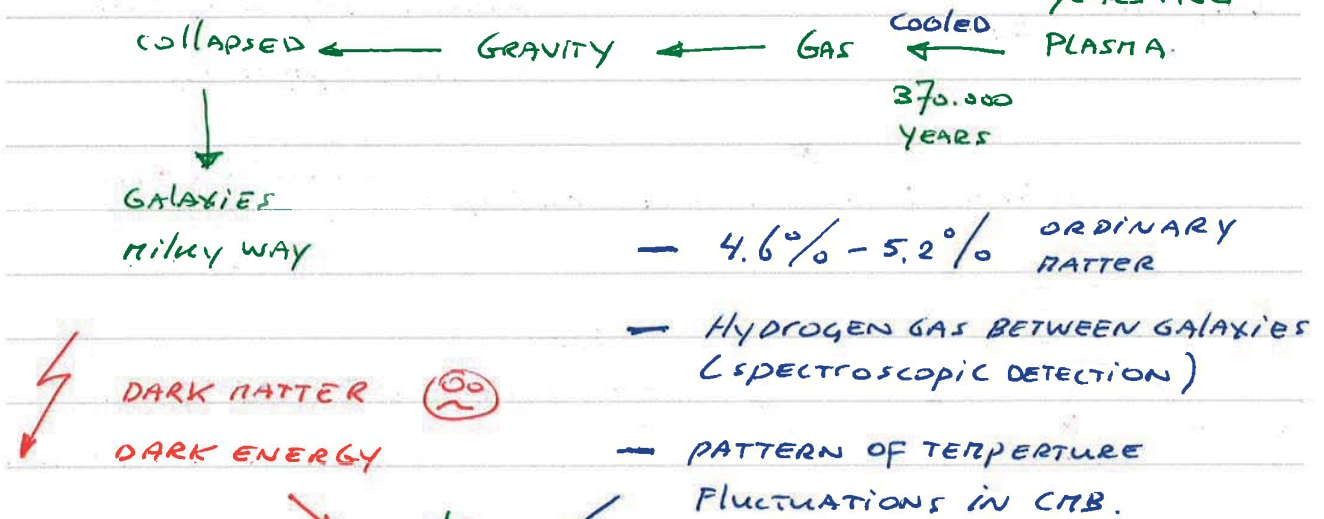 COLLAPSED ← GRAVITY ← GAS ← COOLED PLASMA.
370.000
YEARS
GALAXIES
MILKY WAY
— 4.6% – 5.2% ORDINARY
MATTER
— HYDROGEN GAS BETWEEN GALAXIES
(SPECTROSCOPIC DETECTION)
DARK MATTER
DARK ENERGY
— PATTERN OF TEMPERTURE
FLUCTUATIONS IN CMB.